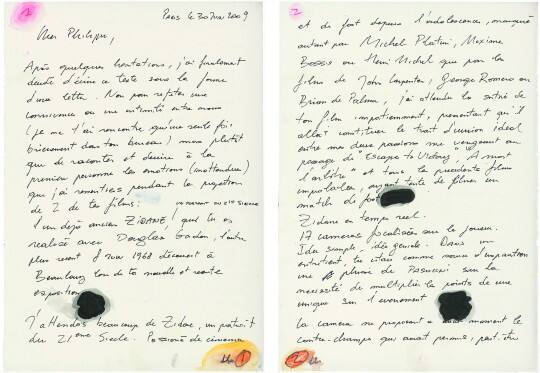 1
Paris le 30 Mai 2009
Cher Philippe,
Après quelques hésitations, j'ai finalement
décidé d'écrire ce texte sous la forme
d'une lettre. Non pour feindre une
connivence ou une intimité entre nous
(je ne t'ai rencontré qu'une seule fois
brièvement dans ton bureau) mais plutôt
que de raconter et décrire à la
première personne les émotions (inattendues)
que j'ai ressenties pendant la projection
de 2 de tes films:
l'un déjà ancien ZIDANE, un portrait du 21e siècle que tu as
réalisé avec Douglas Gordon, l'autre
plus récent 8 Juin 1968 découvert à
Beaubourg lors de ta nouvelle et courte
exposition
J'attendais beaucoup de Zidane, un portrait
du 21ème Siècle. Passionné de cinéma
1
2
et de foot depuis l'adolescence, marqué
autant par Michel Platini, Maxime
Bossis ou Henri Michel que par les
films de John Carpenter, George Romero ou
Brian de Palma, j'ai attendu la sortie de
ton film impatiemment, pressentant qu'il
allait constituer le trait d'union idéal
entre mes deux passions me vengeant au
passage de "Escape to Victory", "A mort
l'arbitre" et tous les précédents films
improbables, ayant tenté de filmer un
match de foot
Zidane en temps réel.
17 caméras focalisées sur le joueur.
Idée simple, idée géniale. Dans un
entretien, tu citais comme source d'inspiration
une phrase de Pasolini sur la
nécessité de multiplier les points de vue
unique sur l'événement
la caméra se proposant à tout moment le
contre-champs qui aurait permis, peut-être
2